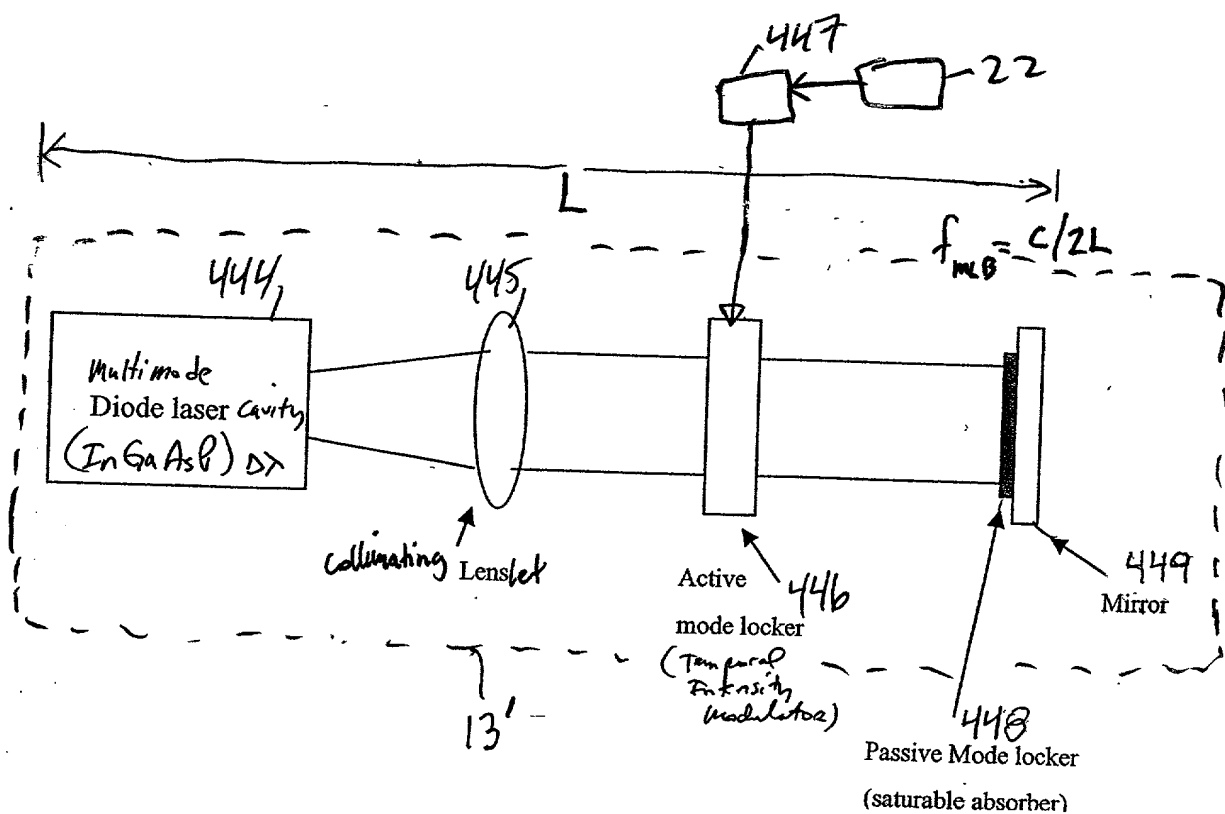 447
22
L
f_MLB = C/2L
444
445
Multimode
Diode laser Cavity
(InGaAsP) Δλ
Collimating Lenslet
Active
mode locker
446
(Temporal
Intensity
Modulator)
449
Mirror
13'
448
Passive Mode locker
(saturable absorber)